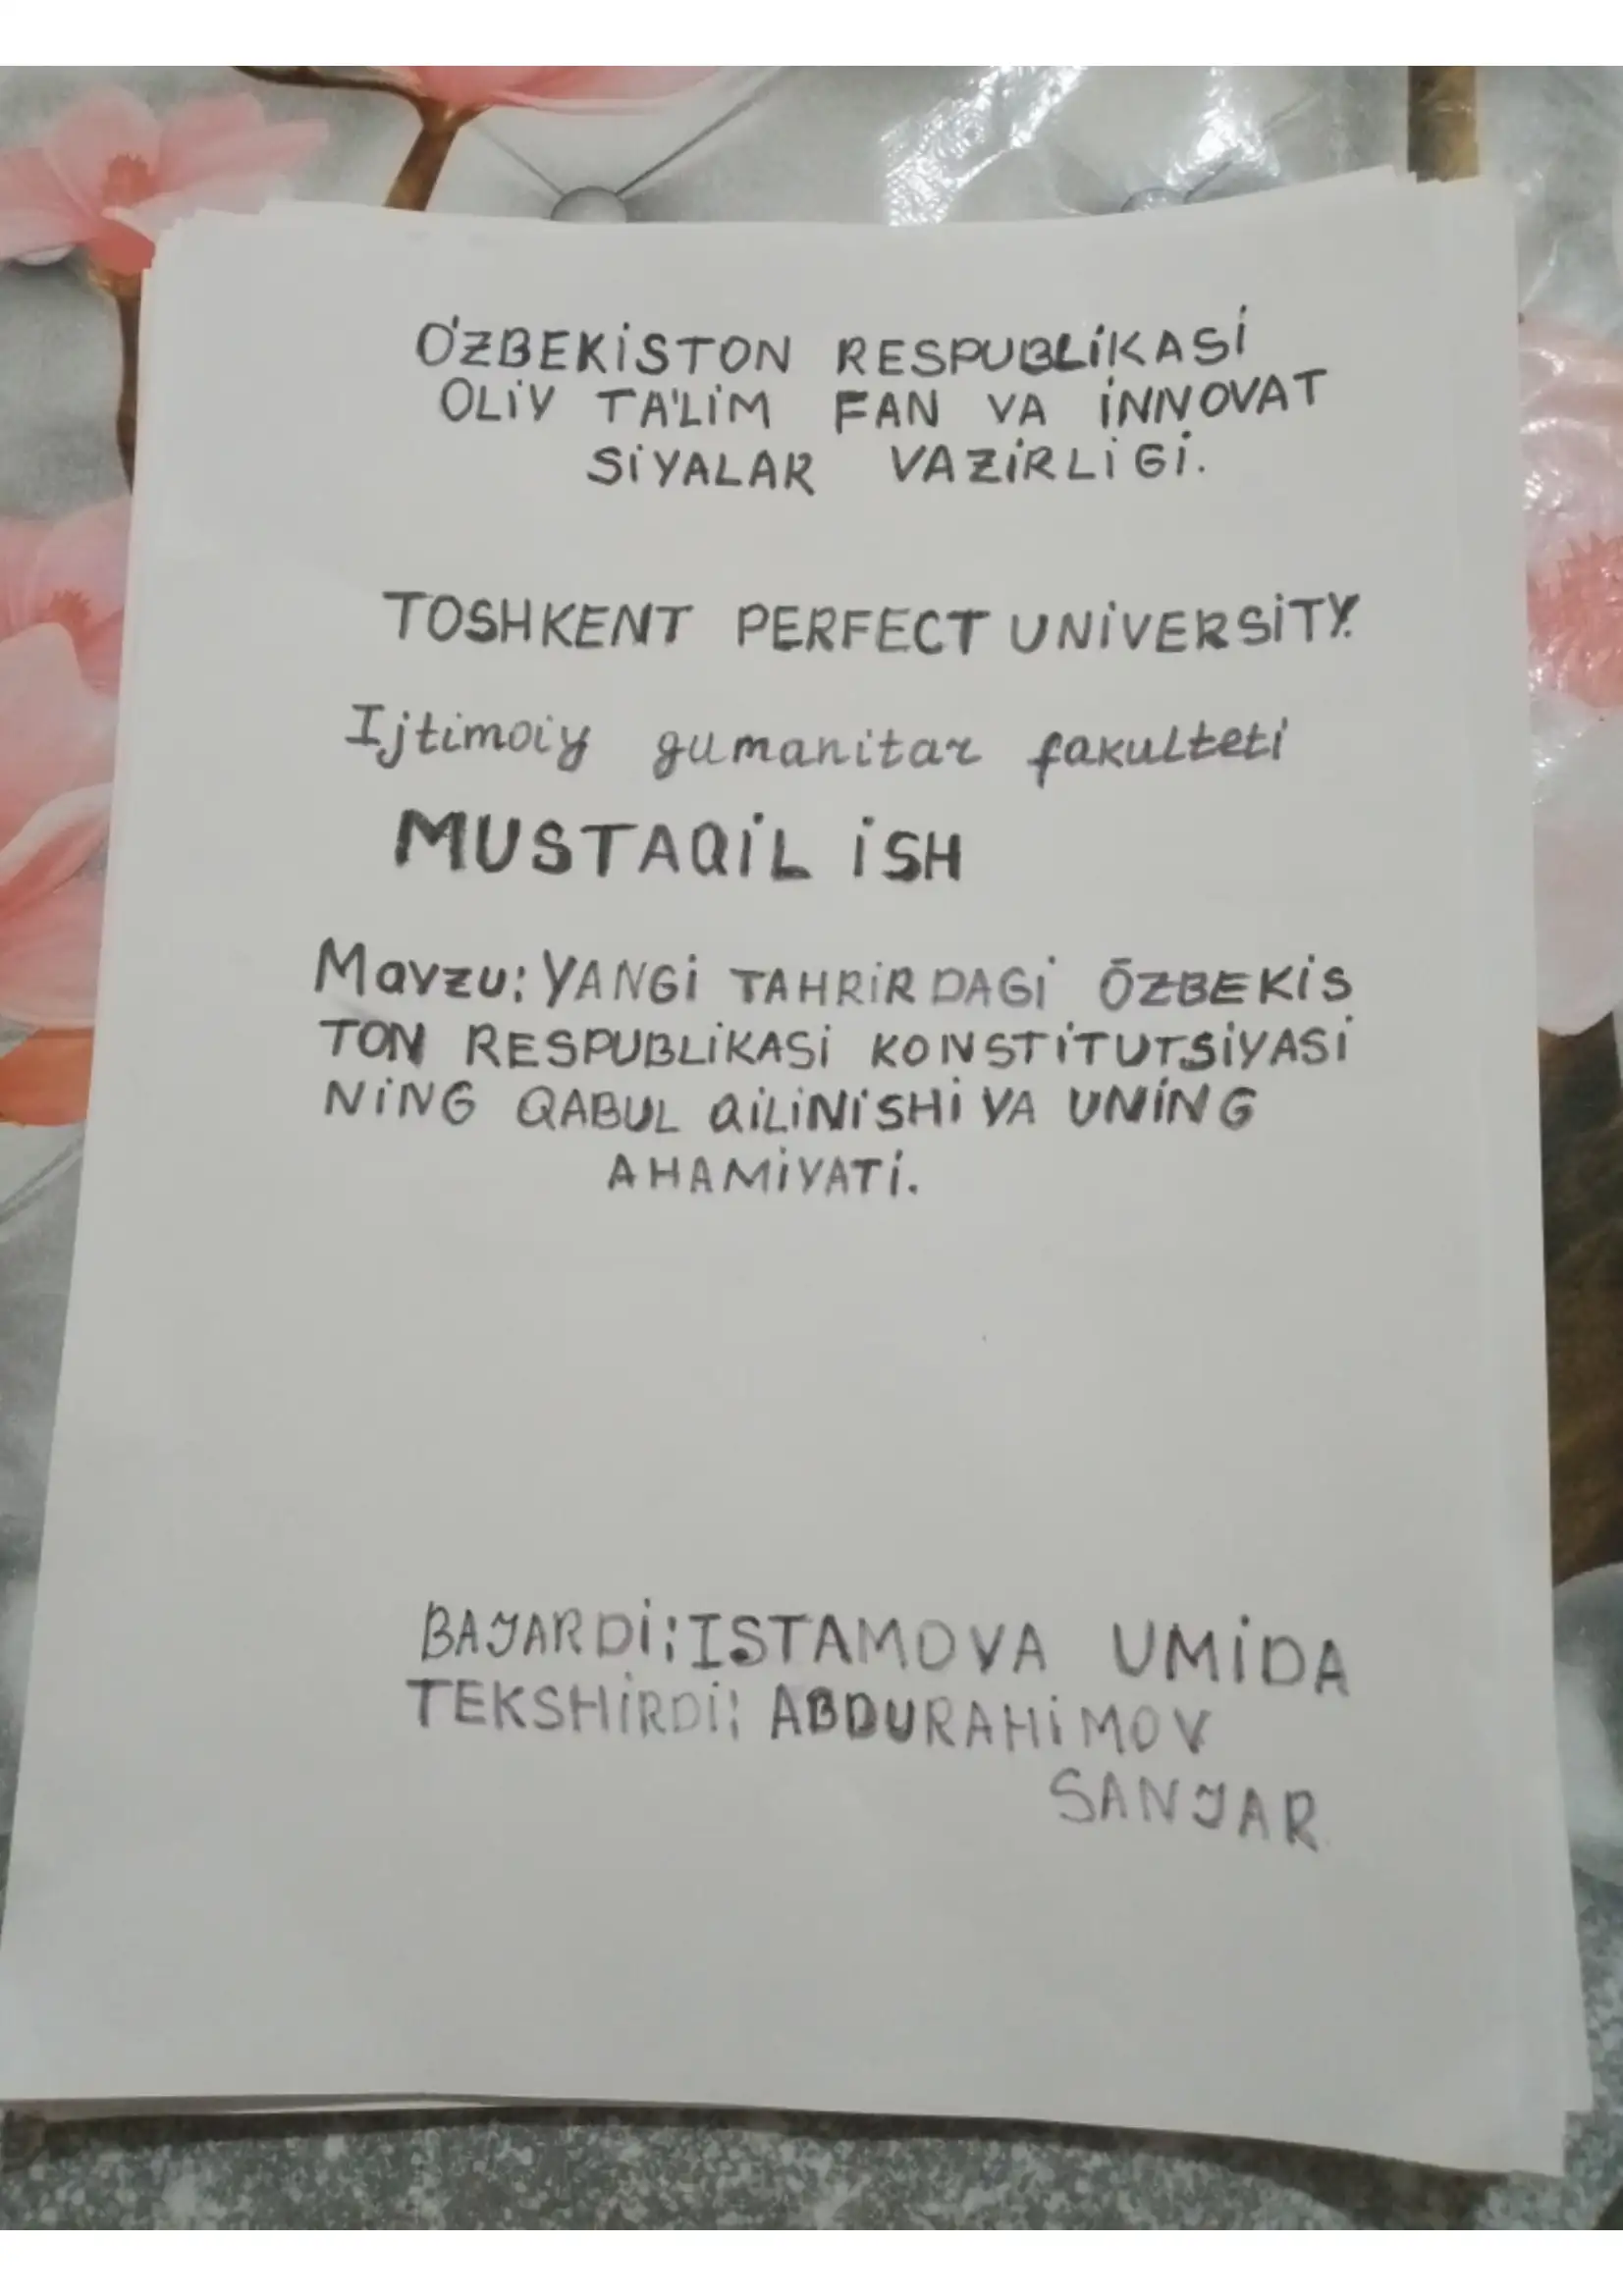 O'ZBEKİSTON RESPUBLİKASİ
OLİY TA'LİM FAN VA İNNOVAT
SİYALAR VAZİRLİGİ.
TOSHKENT PERFECT UNİVERSİTY.
Ijtimoiy gumanitar fakulteti
MUSTAQİL İSH
Mavzu: YANGİ TAHRİRDAGİ ŌZBEKİS
TON RESPUBLİKASİ KONSTİTUTSİYASİ
NİNG QABUL QİLİNİSHİ VA UNİNG
AHAMİYATİ.
BAJARDİ: ISTAMOVA UMİDA
TEKSHİRDİ: ABDURAHİMOV
SANJAR